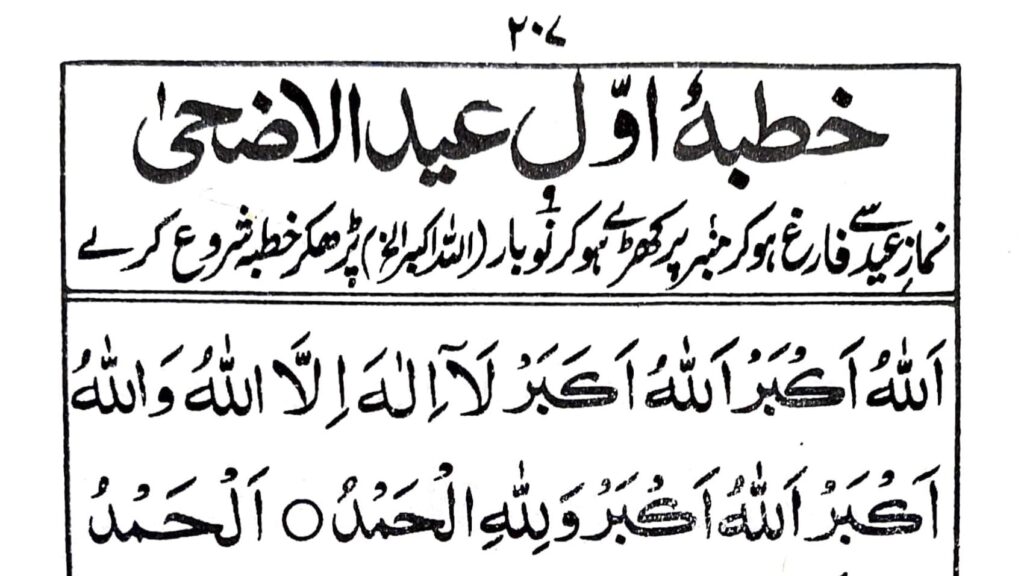 ۲۰۷
خطبۂ اوّل عید الاضحیٰ
نمازِ عید سے فارغ ہو کر منبر پر کھڑے ہو کر نَو بار (اللہ اکبر الخ) پڑھکر خطبہ شروع کرے
اَللّٰهُ اَكْبَرُ اَللّٰهُ اَكَبَرُ لَآ اِلٰهَ اِلَّا اللّٰهُ وَاللّٰهُ
اَكْبَرُ اَللّٰهُ اَكْبَرُ وَلِلّٰهِ الْحَمْدُ ○ اَلْحَمْدُ